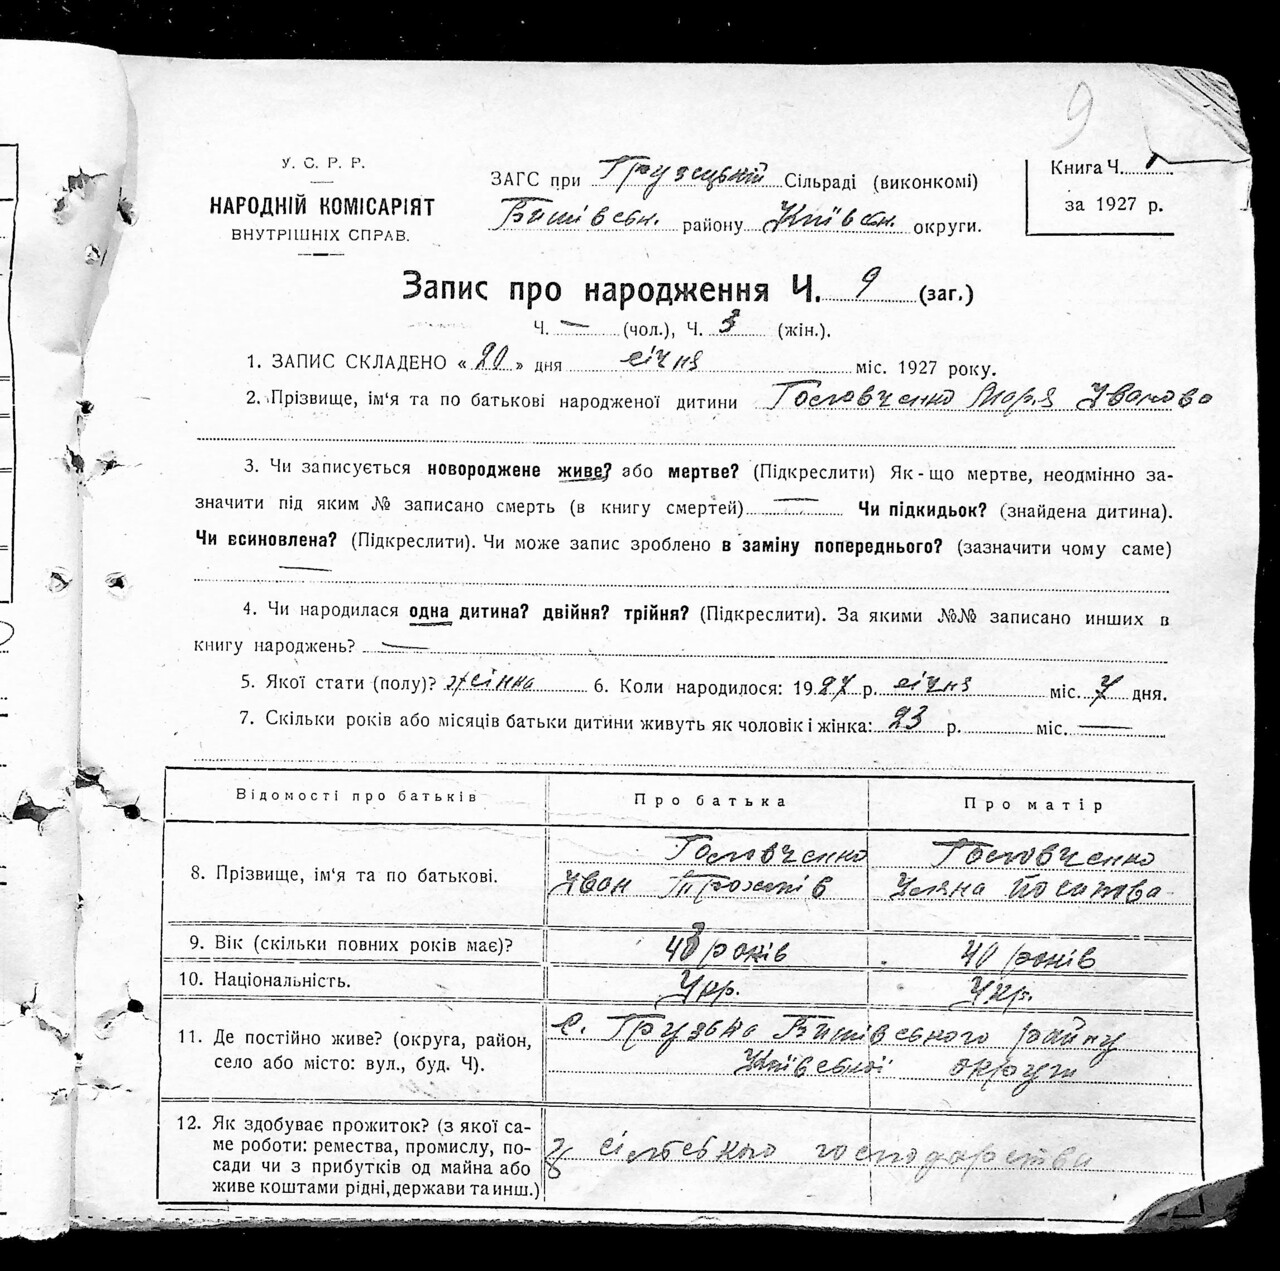 9
У. С. Р. Р.
НАРОДНІЙ КОМІСАРІЯТ
ВНУТРІШНІХ СПРАВ.
ЗАГС при Грузецькій Сільраді (виконкомі)
району Київськ. округи.
Книга Ч.
за 1927 р.
Запис про народження Ч. 9 (заг.)
Ч. — (чол.), Ч. 3 (жін.).
1. ЗАПИС СКЛАДЕНО « 20 » дня січня міс. 1927 року.
2. Прізвище, ім'я та по батькові народженої дитини Головченко Марія Іванова
3. Чи записується новороджене живе? або мертве? (Підкреслити) Як-що мертве, неодмінно за-
значити під яким № записано смерть (в книгу смертей) — Чи підкидьок? (знайдена дитина).
Чи всиновлена? (Підкреслити). Чи може запис зроблено в заміну попереднього? (зазначити чому саме)
—
4. Чи народилася одна дитина? двійня? трійня? (Підкреслити). За якими №№ записано инших в
книгу народжень? —
5. Якої стати (полу)? жіноча 6. Коли народилося: 1927 р. січня міс. 7 дня.
7. Скільки років або місяців батьки дитини живуть як чоловік і жінка: 23 р. міс. —
Відомості про батьків Про батька Про матір
8. Прізвище, ім'я та по батькові. Головченко Іван Трохимів Головченко Уляна
9. Вік (скільки повних років має)? 43 років 40 років
10. Національність. Укр. Укр.
11. Де постійно живе? (округа, район,
село або місто: вул., буд. Ч).
с. Грузька району
Київської округи
12. Як здобуває прожиток? (з якої са-
ме роботи: ремества, промислу, по-
сади чи з прибутків од майна або
живе коштами рідні, держави та инш.)
З сільського господарства